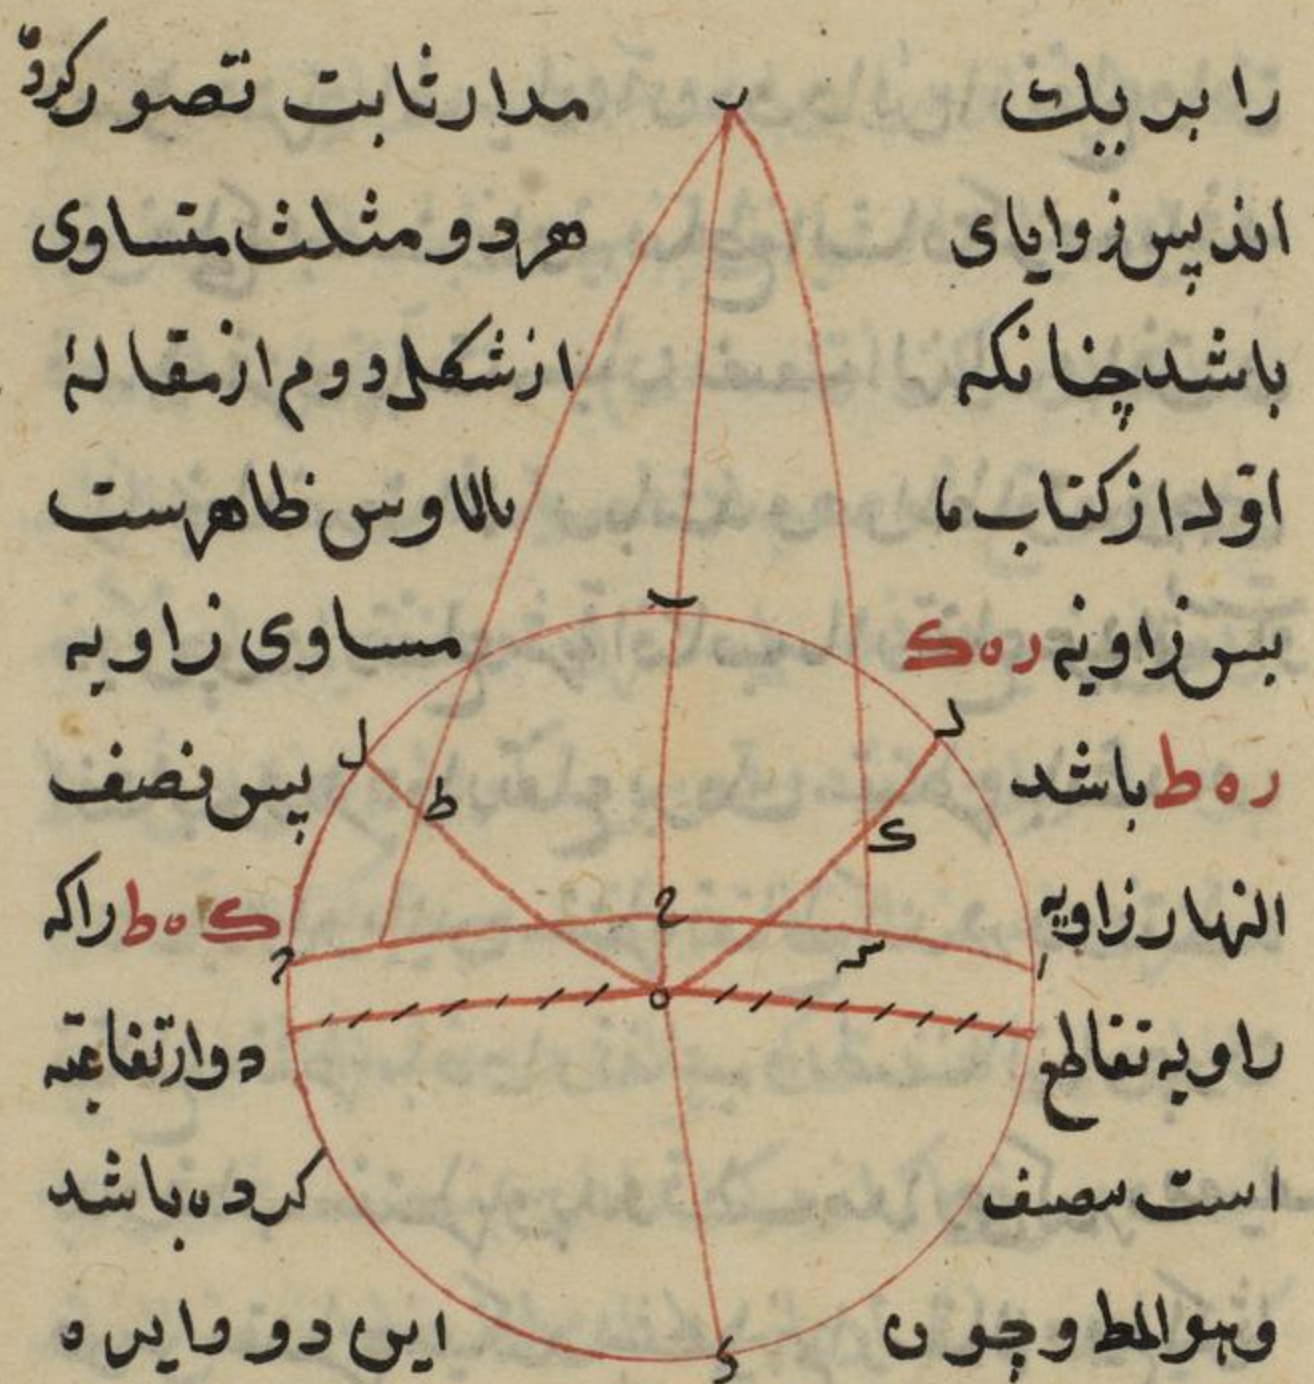 را بر یك مدار ثابت تصور کرده
اند پس زوایای هر دو مثلث متساوی
باشد چنانکه از شکل دوم از مقالهٔ
اول از کتاب مالاناوس ظاهرست
بس زاویهٔ ره‌ك مساوی زاویه
ره‌ط باشد پس نصف
النهار زاویه كه‌ط را که
زاویه تقاطع دوار تفاعیه
است نصف کرده باشد
وهو المط و چون این دو دایره
ب
ل
د
ط
ك
ح
ر
ا
ه